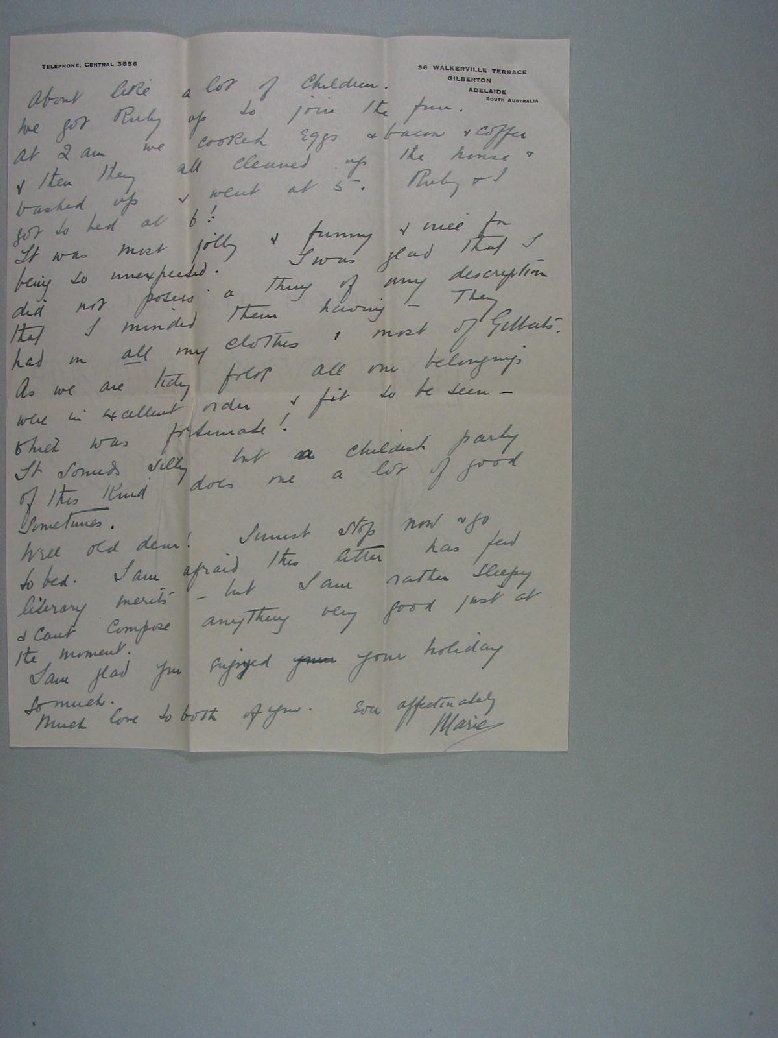 TELEPHONE, CENTRAL 3856
56 WALKERVILLE TERRACE
GILBERTON
ADELAIDE
SOUTH AUSTRALIA
about like a lot of children.
We got Ruby up to join the fun.
At 2 am we cooked eggs & bacon & coffee
& then they all cleaned up the house &
washed up & went at 5. Ruby & I
got to bed at 6!
It was most jolly & funny & nice for
being so unexpected. I was glad that I
did not possess a thing of any description
that I minded them having – They
had on all my clothes & most of Gilbert's.
As we are tidy folot all our belongings
were in excellent order & fit to be seen –
which was fortunate!
It sounds silly but a childish party
of this kind does one a lot of good
sometimes.
Well old dear! I must stop now & go
to bed. I am afraid this letter has few
literary merits – but I am rather sleepy
& can't compose anything very good just at
the moment.
I am glad you enjoyed your holiday
so much.
Much love to both of you. Your affectionately
Marie